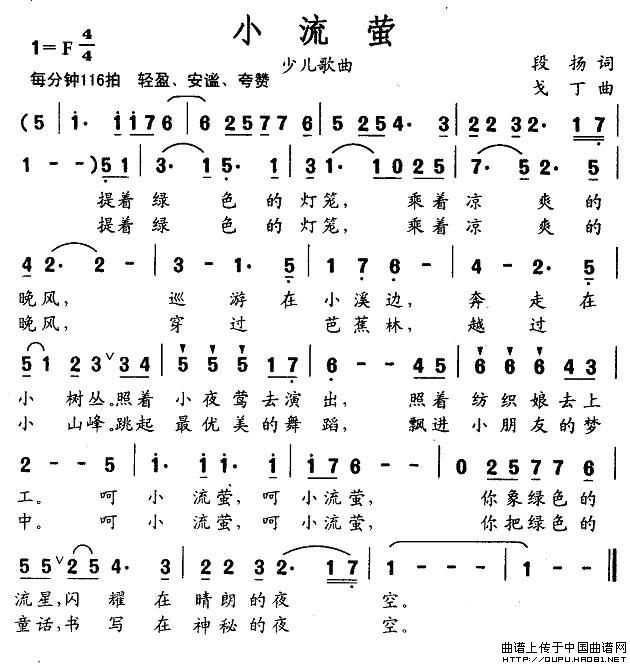 小流萤
1=F 4/4
少儿歌曲
段 扬 词
每分钟116拍 轻盈、安谧、夸赞
戈 丁 曲
(5 | 1· 1176 | 6 2577 6 | 5 254· 3 | 2232· 17 |
1 - -)51 | 3· 15· 1 | 31· 1025 | 7· 52· 5 |
提着绿 色的灯笼, 乘着凉 爽的
提着绿 色的灯笼, 乘着凉 爽的
42· 2 - | 3 - 1· 5 | 1 7 6 - | 4 - 2· 5 |
晚风, 巡 游在小溪边, 奔 走在
晚风, 穿 过 芭蕉林, 越 过
51 23∨34 | 5 5 5 17 | 6 - - 45 | 6 6 6 43 |
小 树丛。照着 小夜莺去演 出, 照着 纺织娘去上
小 山峰。跳起 最优美的舞 蹈, 飘进 小朋友的梦
2 - - 5 | 1· 1 1· 1 | 176 - - | 0 2577 6 |
工。 呵 小 流萤, 呵 小流萤, 你象绿色的
中。 呵 小 流萤, 呵 小流萤, 你把绿色的
55∨25 4· 3 | 22 3 2· 17 | 1 - - - | 1 - - ‖
流星,闪 耀 在 晴朗的夜 空。
童话,书 写 在 神秘的夜 空。
曲谱上传于中国曲谱网
HTTP://QUPU.HAO81.NET